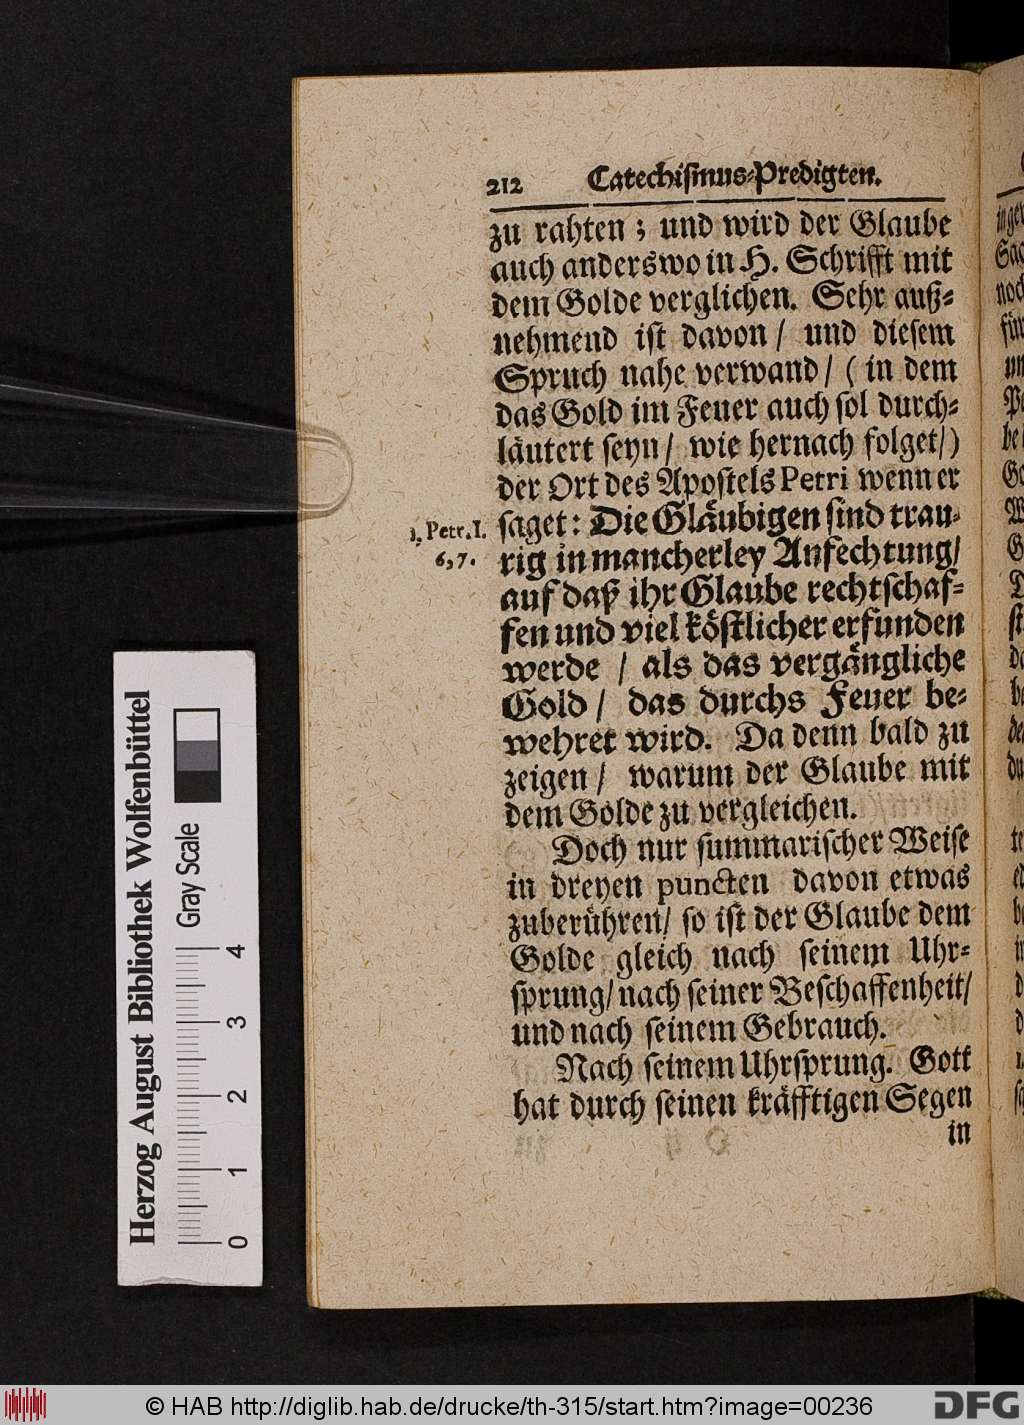 212 Catechismus-Predigten.
zu rahten; und wird der Glaube
auch anderswo in H. Schrifft mit
dem Golde verglichen. Sehr auß-
nehmend ist davon / und diesem
Spruch nahe verwand / ( in dem
das Gold im Feuer auch sol durch-
läutert seyn / wie hernach folget /)
der Ort des Apostels Petri wenn er
1. Petr. I. saget: Die Gläubigen sind trau-
6, 7. rig in mancherley Anfechtung /
auf daß ihr Glaube rechtschaf-
fen und viel köstlicher erfunden
werde / als das vergängliche
Gold / das durchs Feuer be-
wehret wird. Da denn bald zu
zeigen / warum der Glaube mit
dem Golde zu vergleichen.
Doch nur summarischer Weise
in dreyen puncten davon etwas
zuberühren / so ist der Glaube dem
Golde gleich nach seinem Uhr-
sprung / nach seiner Beschaffenheit /
und nach seinem Gebrauch.
Nach seinem Uhrsprung. Gott
hat durch seinen kräfftigen Segen
in
Herzog August Bibliothek Wolfenbüttel
Gray Scale
0 1 2 3 4
© HAB http://diglib.hab.de/drucke/th-315/start.htm?image=00236
DFG